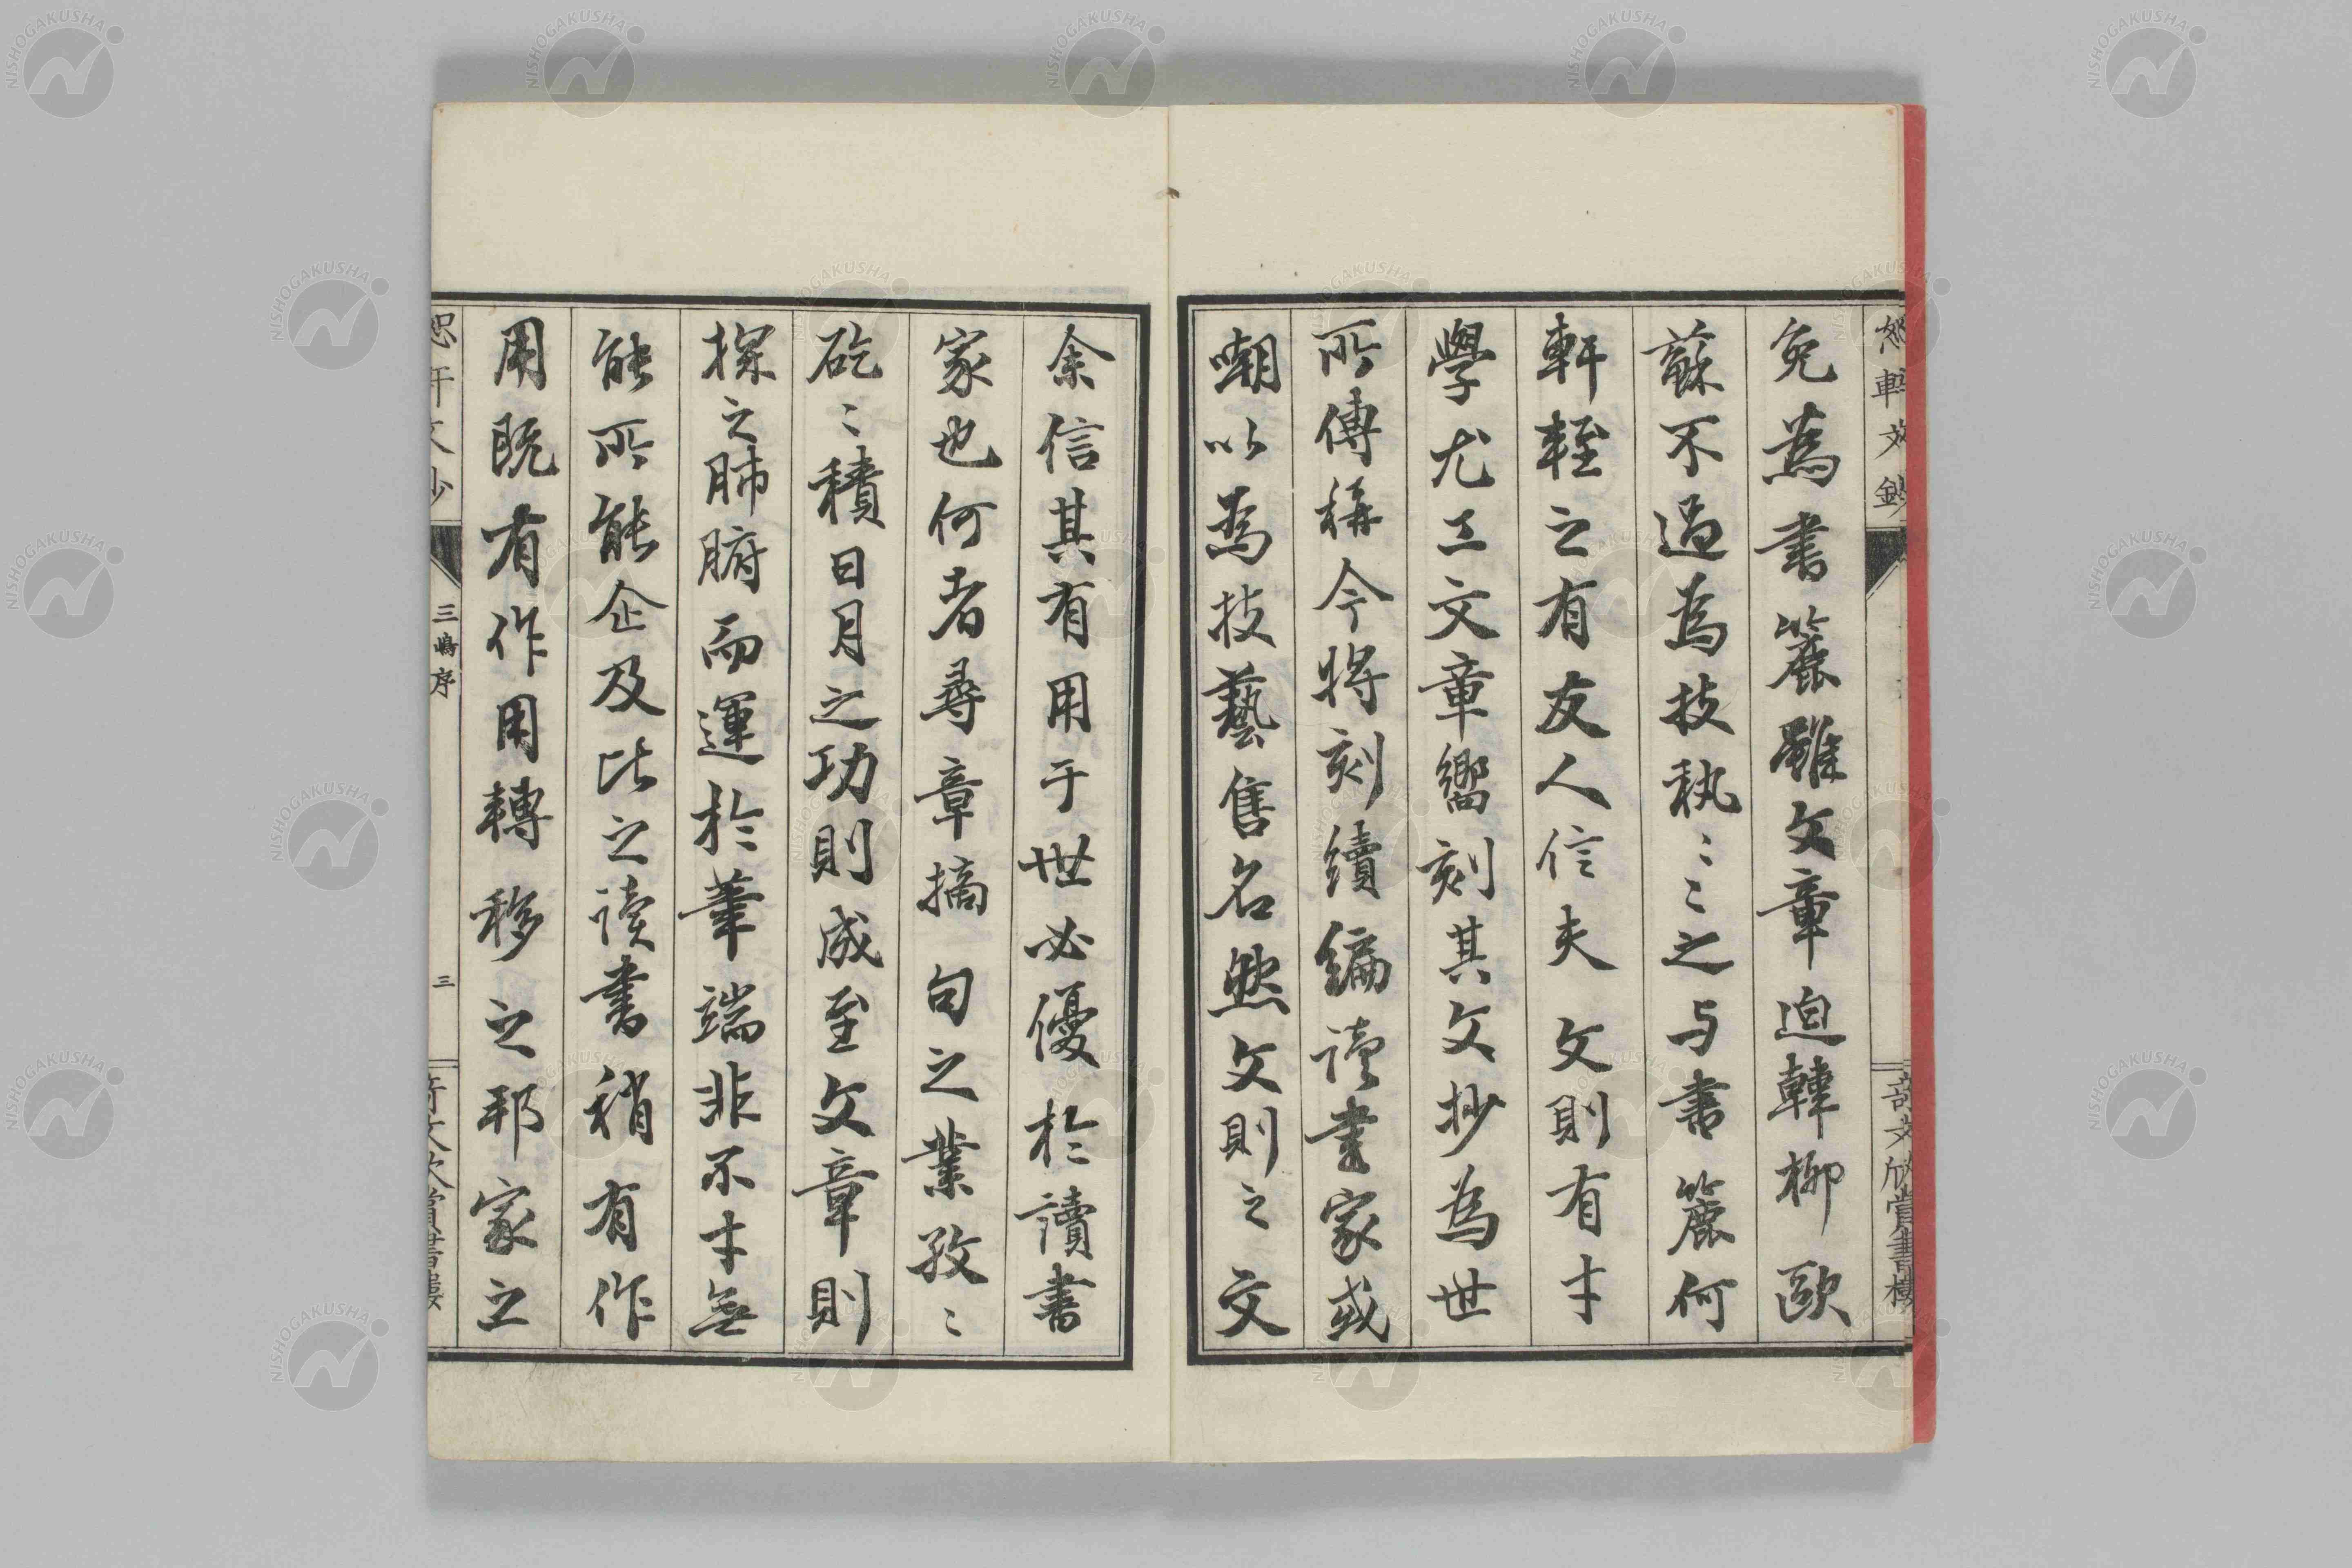 恕軒文鈔
奇文欣賞書樓
免為書簏雖文章迫韓柳歐
蘇不過為技執〻〻之与書簏何
軒輊之有友人信夫文則有才
學尤工文章嚮刻其文抄為世
所傳稱今將刻續編讀書家或
嘲以為技藝售名然文則之文
余信其有用于世必優於讀書
家也何者尋章摘句之業孜〻
矻〻積日月之功則成至文章則
探之肺腑而運於筆端非不才無
能所能企及比之读書稍有作
用既有作用轉移之邦家之
恕軒文鈔
三嶋序
三
奇文欣賞書樓
NISHOGAKUSHA